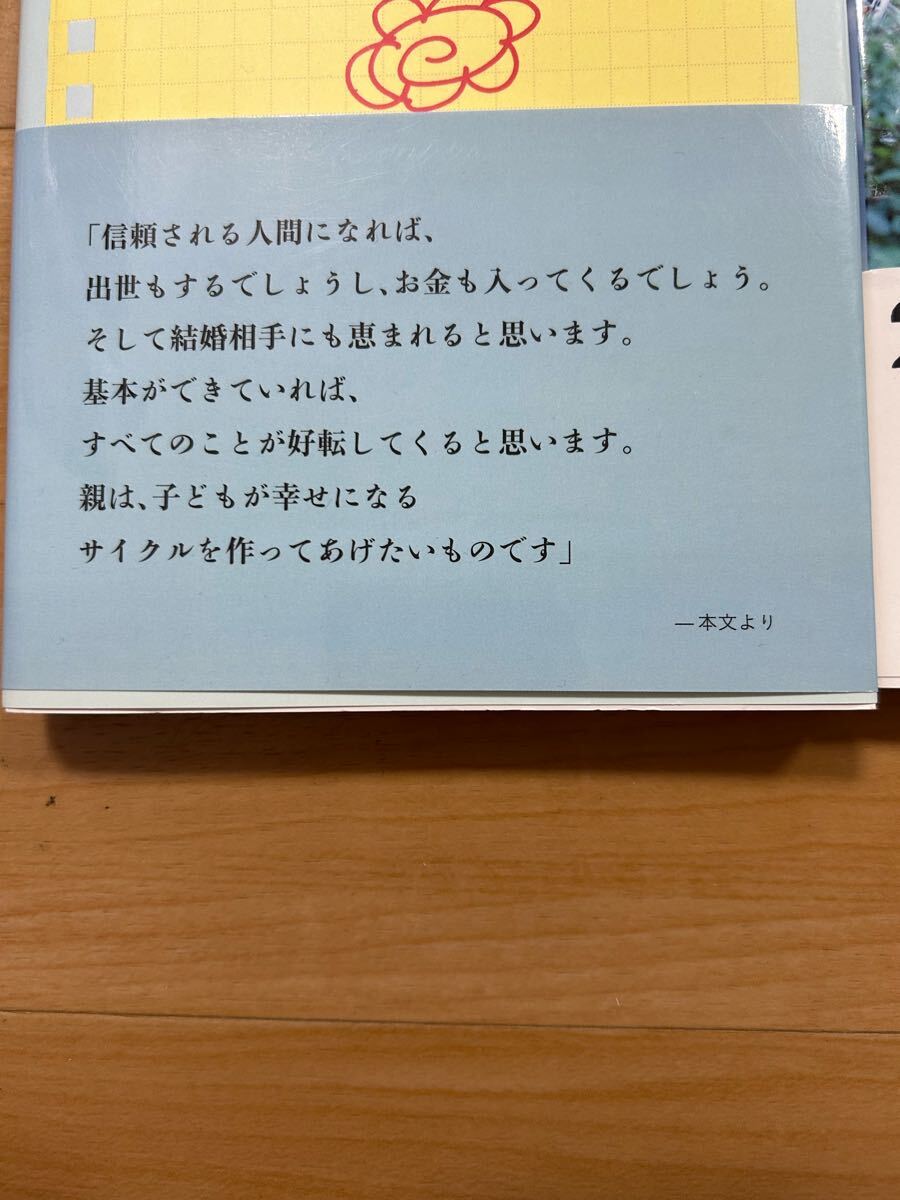 「信頼される人間になれば、
出世もするでしょうし、お金も入ってくるでしょう。
そして結婚相手にも恵まれると思います。
基本ができていれば、
すべてのことが好転してくると思います。
親は、子どもが幸せになる
サイクルを作ってあげたいものです」
—本文より